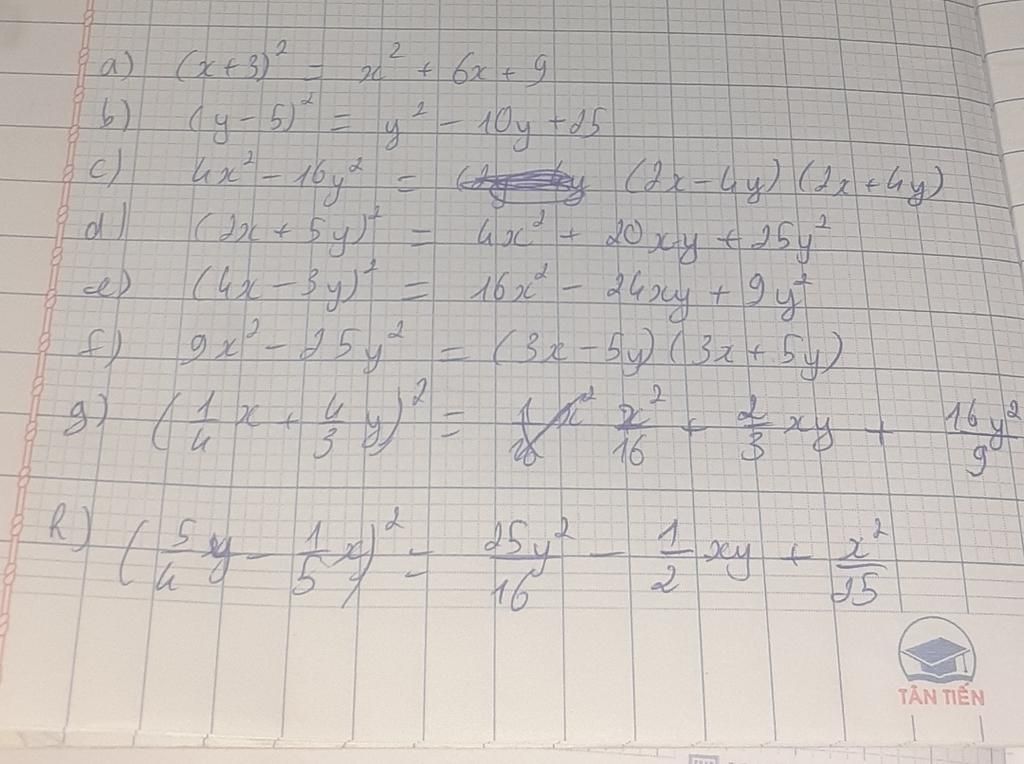 a) (x+3)² = x² + 6x + 9
b) (y-5)² = y² - 10y + 25
c) 4x² - 16y² = (2x-4y) (2x+4y)
d) (2x + 5y)² = 4x² + 20xy + 25y²
e) (4x - 3y)² = 16x² - 24xy + 9y²
f) 9x² - 25y² = (3x - 5y) (3x + 5y)
g) (1/4 x + 4/3 y)² = x²/16 + 2/3 xy + 16y²/9
h) (5/4 y - 1/5 x)² = 25y²/16 - 1/2 xy + x²/25
TÂN TIẾN